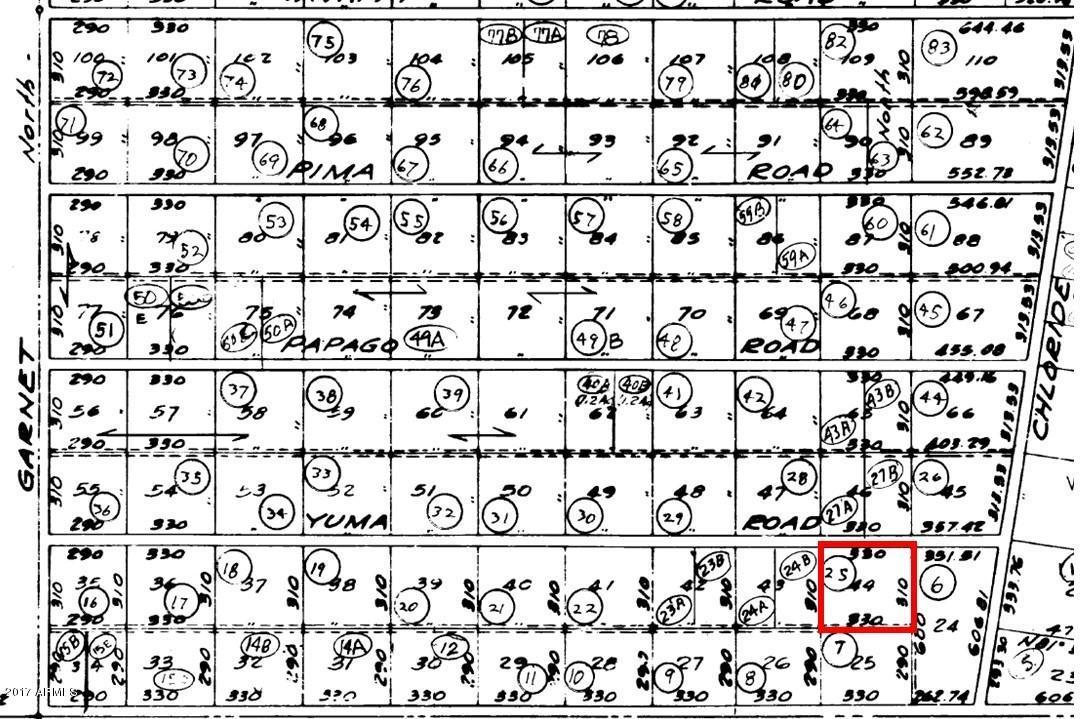 290 330 75 77B 77A 78 82 83 644.46
310 100 101 102 103 104 105 106 107 108 109 310 110 313.53
72 73 74 76 79 80 North
290 330 330 598.59
North
71 68 64 62
310 99 98 97 96 95 94 93 92 91 90 310 89 313.53
70 69 67 66 65 63
290 330 PIMA ROAD 330 552.73
290 330 53 54 55 56 57 58 59B 330 60 61 546.81
310 79 80 81 82 83 84 85 86 87 310 88 313.53
52 59A
290 330 500.94
50 46 45
310 77 E 76 75 74 73 72 71 70 69 68 310 67 313.53
51 50A 49A 49B 48 47
290 330 PAPAGO ROAD 330 455.08
CHLORIDE
GARNET
290 330 37 38 39 40A 40B 41 42 330 43B 44 449.16
310 56 57 58 59 60 61 62 63 64 65 310 66 313.53
43A
290 330 330 403.29
35 33 28 27B 26
310 55 54 53 52 51 50 49 48 47 46 310 45 313.53
36 34 32 31 30 29 27A
290 330 YUMA ROAD 330 357.42
290 330 18 19 23B 24B 330 351.51
310 35 310 36 310 37 38 310 39 310 40 310 41 310 42 310 43 310 25 44 310 6 933.76
16 17 20 21 22 23A 24A
290 330 330 600 24 606.81
15B 14B 14A 12 7 NOI°
290 34 290 33 290 32 290 31 290 30 290 29 290 28 290 27 290 26 290 25 290 293.30 5
11 10 9 8
290 330 330 330 330 330 330 330 330 262.74 606
2017 ARMLS